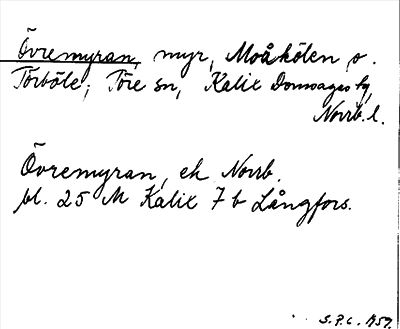 Övremyran, myr, Moåkölen o.
Törböle; Töre sn, Kalix Domsagas tg,
Norrb. l.
Övremyran, ek Norrb.
bl. 25 M Kalix 7 b Långfors.
S.P.C. 1957.